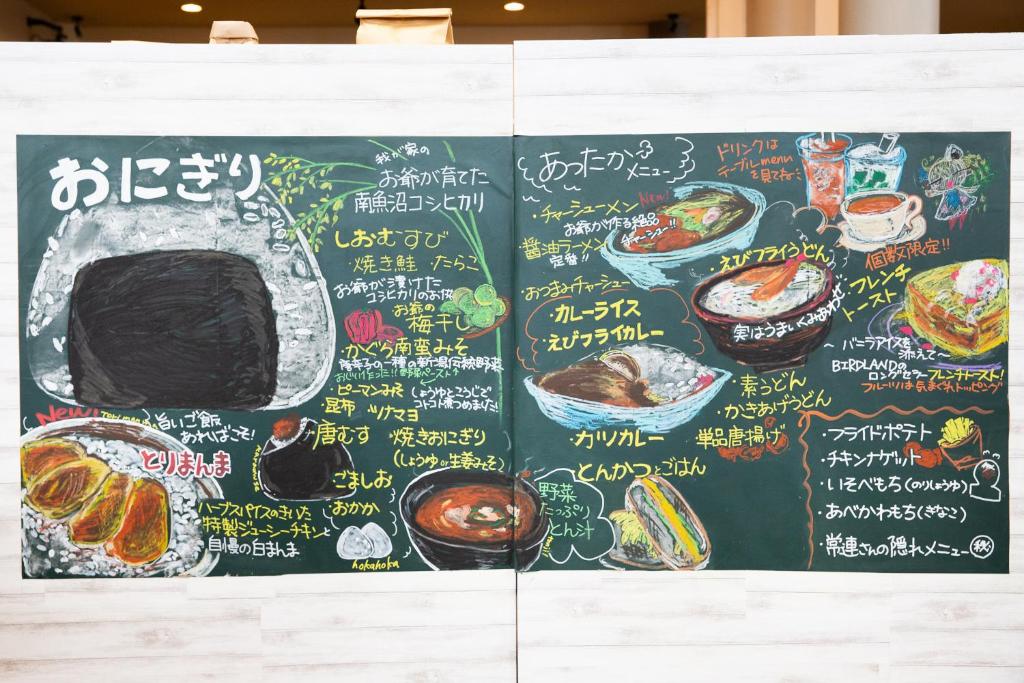 おにぎり
我が家の
お爺が育てた
南魚沼コシヒカリ
しおむすび
・焼き鮭 たらこ
お爺が漬けた
コシヒカリのお供
お爺の
・梅干し
・かぐら南蛮みそ
・ピーマンみそ
しょうゆとこうじで
コトコト煮つめました!
・昆布 ・ツナマヨ
・唐むす
・焼きおにぎり
(しょうゆor生姜みそ)
・ごましお
・おかか
hokahoka
New!
旨いご飯
あればこそ!
とりまんま
ハーブスパイスのきいた
特製ジューシーチキンと
自慢の白まんま
あったか
メニュー
・チャーシューメン
New!
お爺が作る絶品
チャーシュー!!
・醤油ラーメン
定番!!
・おつまみチャーシュー
・カレーライス
・えびフライカレー
・カツカレー
・とんかつとごはん
野菜
たっぷり
とん汁
・えびフライうどん
実はうまいくみあわせ
・素うどん
・かきあげうどん
・単品唐揚げ
ドリンクは
テーブルmenu
を見てね
個数限定!!
・フレンチ
トースト
〜バニラアイスを
添えて〜
BIRDLANDの
ロングセラーフレンチトースト!
フルーツは気まぐれトッピング
・フライドポテト
・チキンナゲット
・いそべもち(のりしょうゆ)
・あべかわもち(きなこ)
・常連さんの隠れメニュー㊙